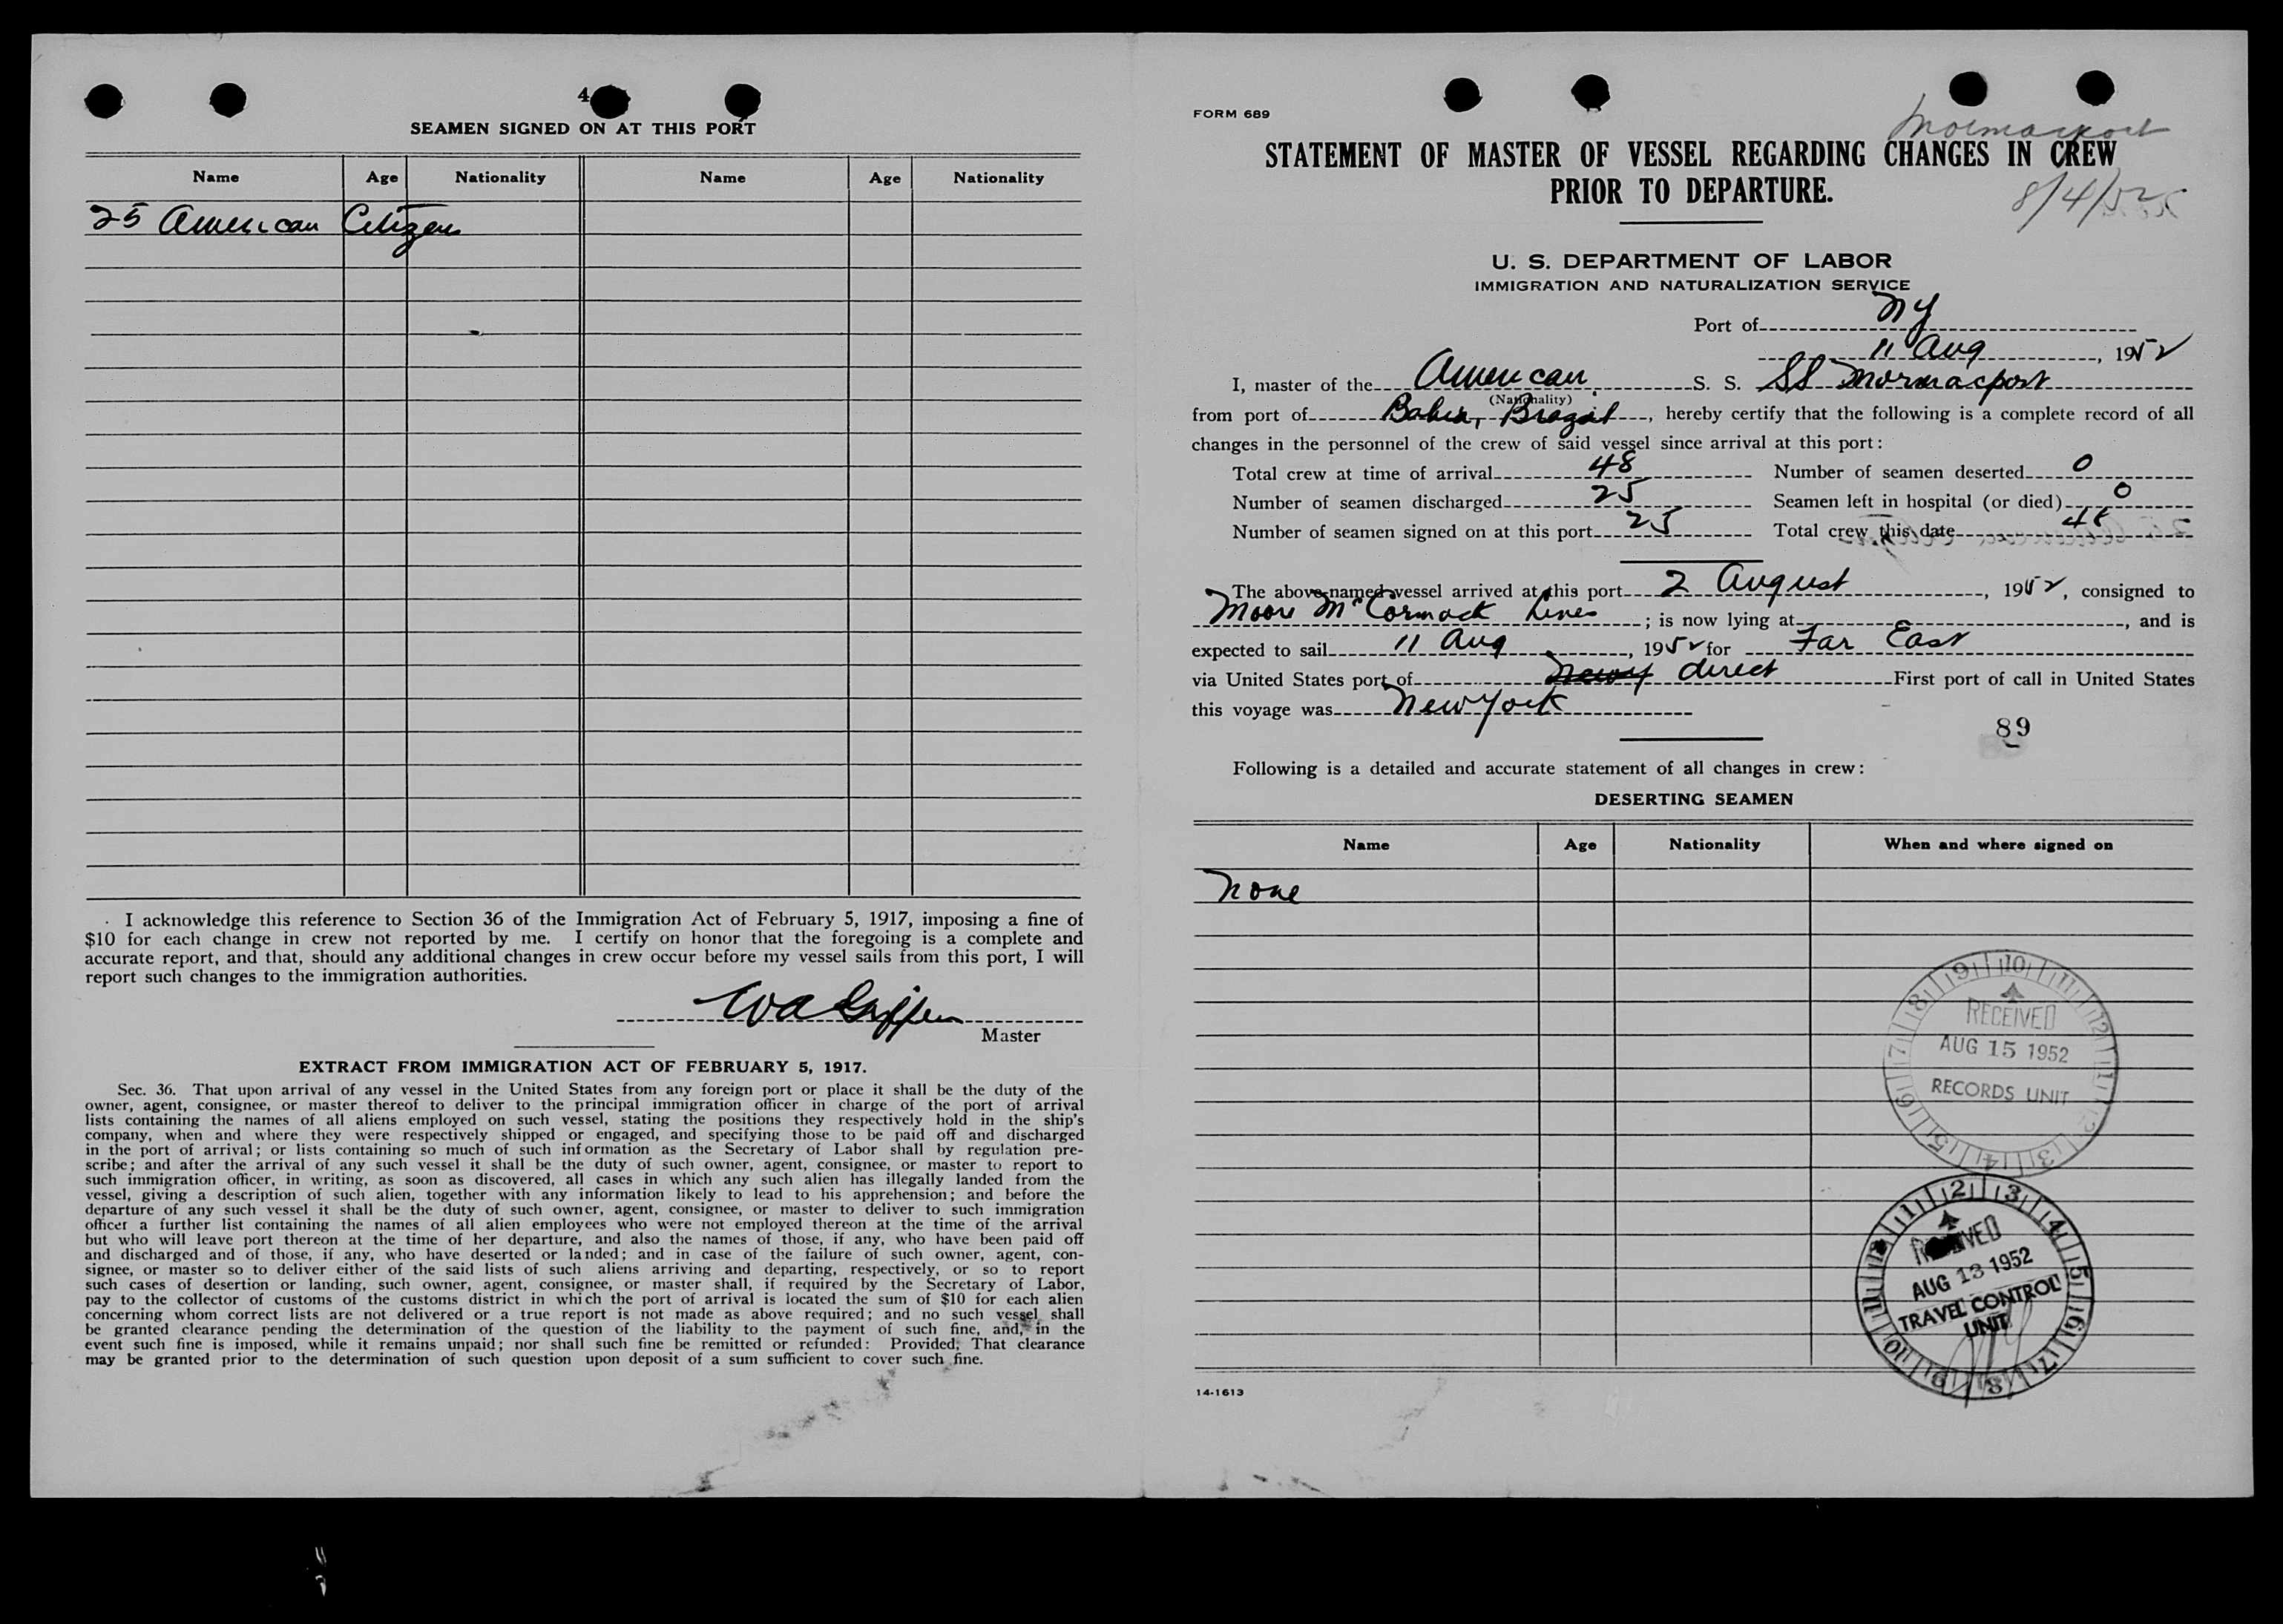 4
SEAMEN SIGNED ON AT THIS PORT
Name Age Nationality Name Age Nationality
25 American Citizen
I acknowledge this reference to Section 36 of the Immigration Act of February 5, 1917, imposing a fine of
$10 for each change in crew not reported by me. I certify on honor that the foregoing is a complete and
accurate report, and that, should any additional changes in crew occur before my vessel sails from this port, I will
report such changes to the immigration authorities.
Master
EXTRACT FROM IMMIGRATION ACT OF FEBRUARY 5, 1917.
Sec. 36. That upon arrival of any vessel in the United States from any foreign port or place it shall be the duty of the
owner, agent, consignee, or master thereof to deliver to the principal immigration officer in charge of the port of arrival
lists containing the names of all aliens employed on such vessel, stating the positions they respectively hold in the ship's
company, when and where they were respectively shipped or engaged, and specifying those to be paid off and discharged
in the port of arrival; or lists containing so much of such information as the Secretary of Labor shall by regulation pre-
scribe; and after the arrival of any such vessel it shall be the duty of such owner, agent, consignee, or master to report to
such immigration officer, in writing, as soon as discovered, all cases in which any such alien has illegally landed from the
vessel, giving a description of such alien, together with any information likely to lead to his apprehension; and before the
departure of any such vessel it shall be the duty of such owner, agent, consignee, or master to deliver to such immigration
officer a further list containing the names of all alien employees who were not employed thereon at the time of the arrival
but who will leave port thereon at the time of her departure, and also the names of those, if any, who have been paid off
and discharged and of those, if any, who have deserted or landed; and in case of the failure of such owner, agent, con-
signee, or master so to deliver either of the said lists of such aliens arriving and departing, respectively, or so to report
such cases of desertion or landing, such owner, agent, consignee, or master shall, if required by the Secretary of Labor,
pay to the collector of customs of the customs district in which the port of arrival is located the sum of $10 for each alien
concerning whom correct lists are not delivered or a true report is not made as above required; and no such vessel shall
be granted clearance pending the determination of the question of the liability to the payment of such fine, and, in the
event such fine is imposed, while it remains unpaid; nor shall such fine be remitted or refunded: Provided, That clearance
may be granted prior to the determination of such question upon deposit of a sum sufficient to cover such fine.
FORM 689
Mormacport
STATEMENT OF MASTER OF VESSEL REGARDING CHANGES IN CREW
PRIOR TO DEPARTURE.
8/4/52
U. S. DEPARTMENT OF LABOR
IMMIGRATION AND NATURALIZATION SERVICE
Port of NY
11 Aug, 1952
I, master of the American S. S. SS Mormacport
(Nationality)
from port of Bahia, Brazil, hereby certify that the following is a complete record of all
changes in the personnel of the crew of said vessel since arrival at this port:
Total crew at time of arrival 48 Number of seamen deserted 0
Number of seamen discharged 25 Seamen left in hospital (or died) 0
Number of seamen signed on at this port 25 Total crew this date 48
The above-named vessel arrived at this port 2 August, 1952, consigned to
Moore McCormack Lines; is now lying at , and is
expected to sail 11 Aug, 1952 for Far East
via United States port of direct First port of call in United States
this voyage was New York
89
Following is a detailed and accurate statement of all changes in crew:
DESERTING SEAMEN
Name Age Nationality When and where signed on
None
RECEIVED
AUG 15 1952
RECORDS UNIT
RECEIVED
AUG 13 1952
TRAVEL CONTROL
UNIT
14-1613